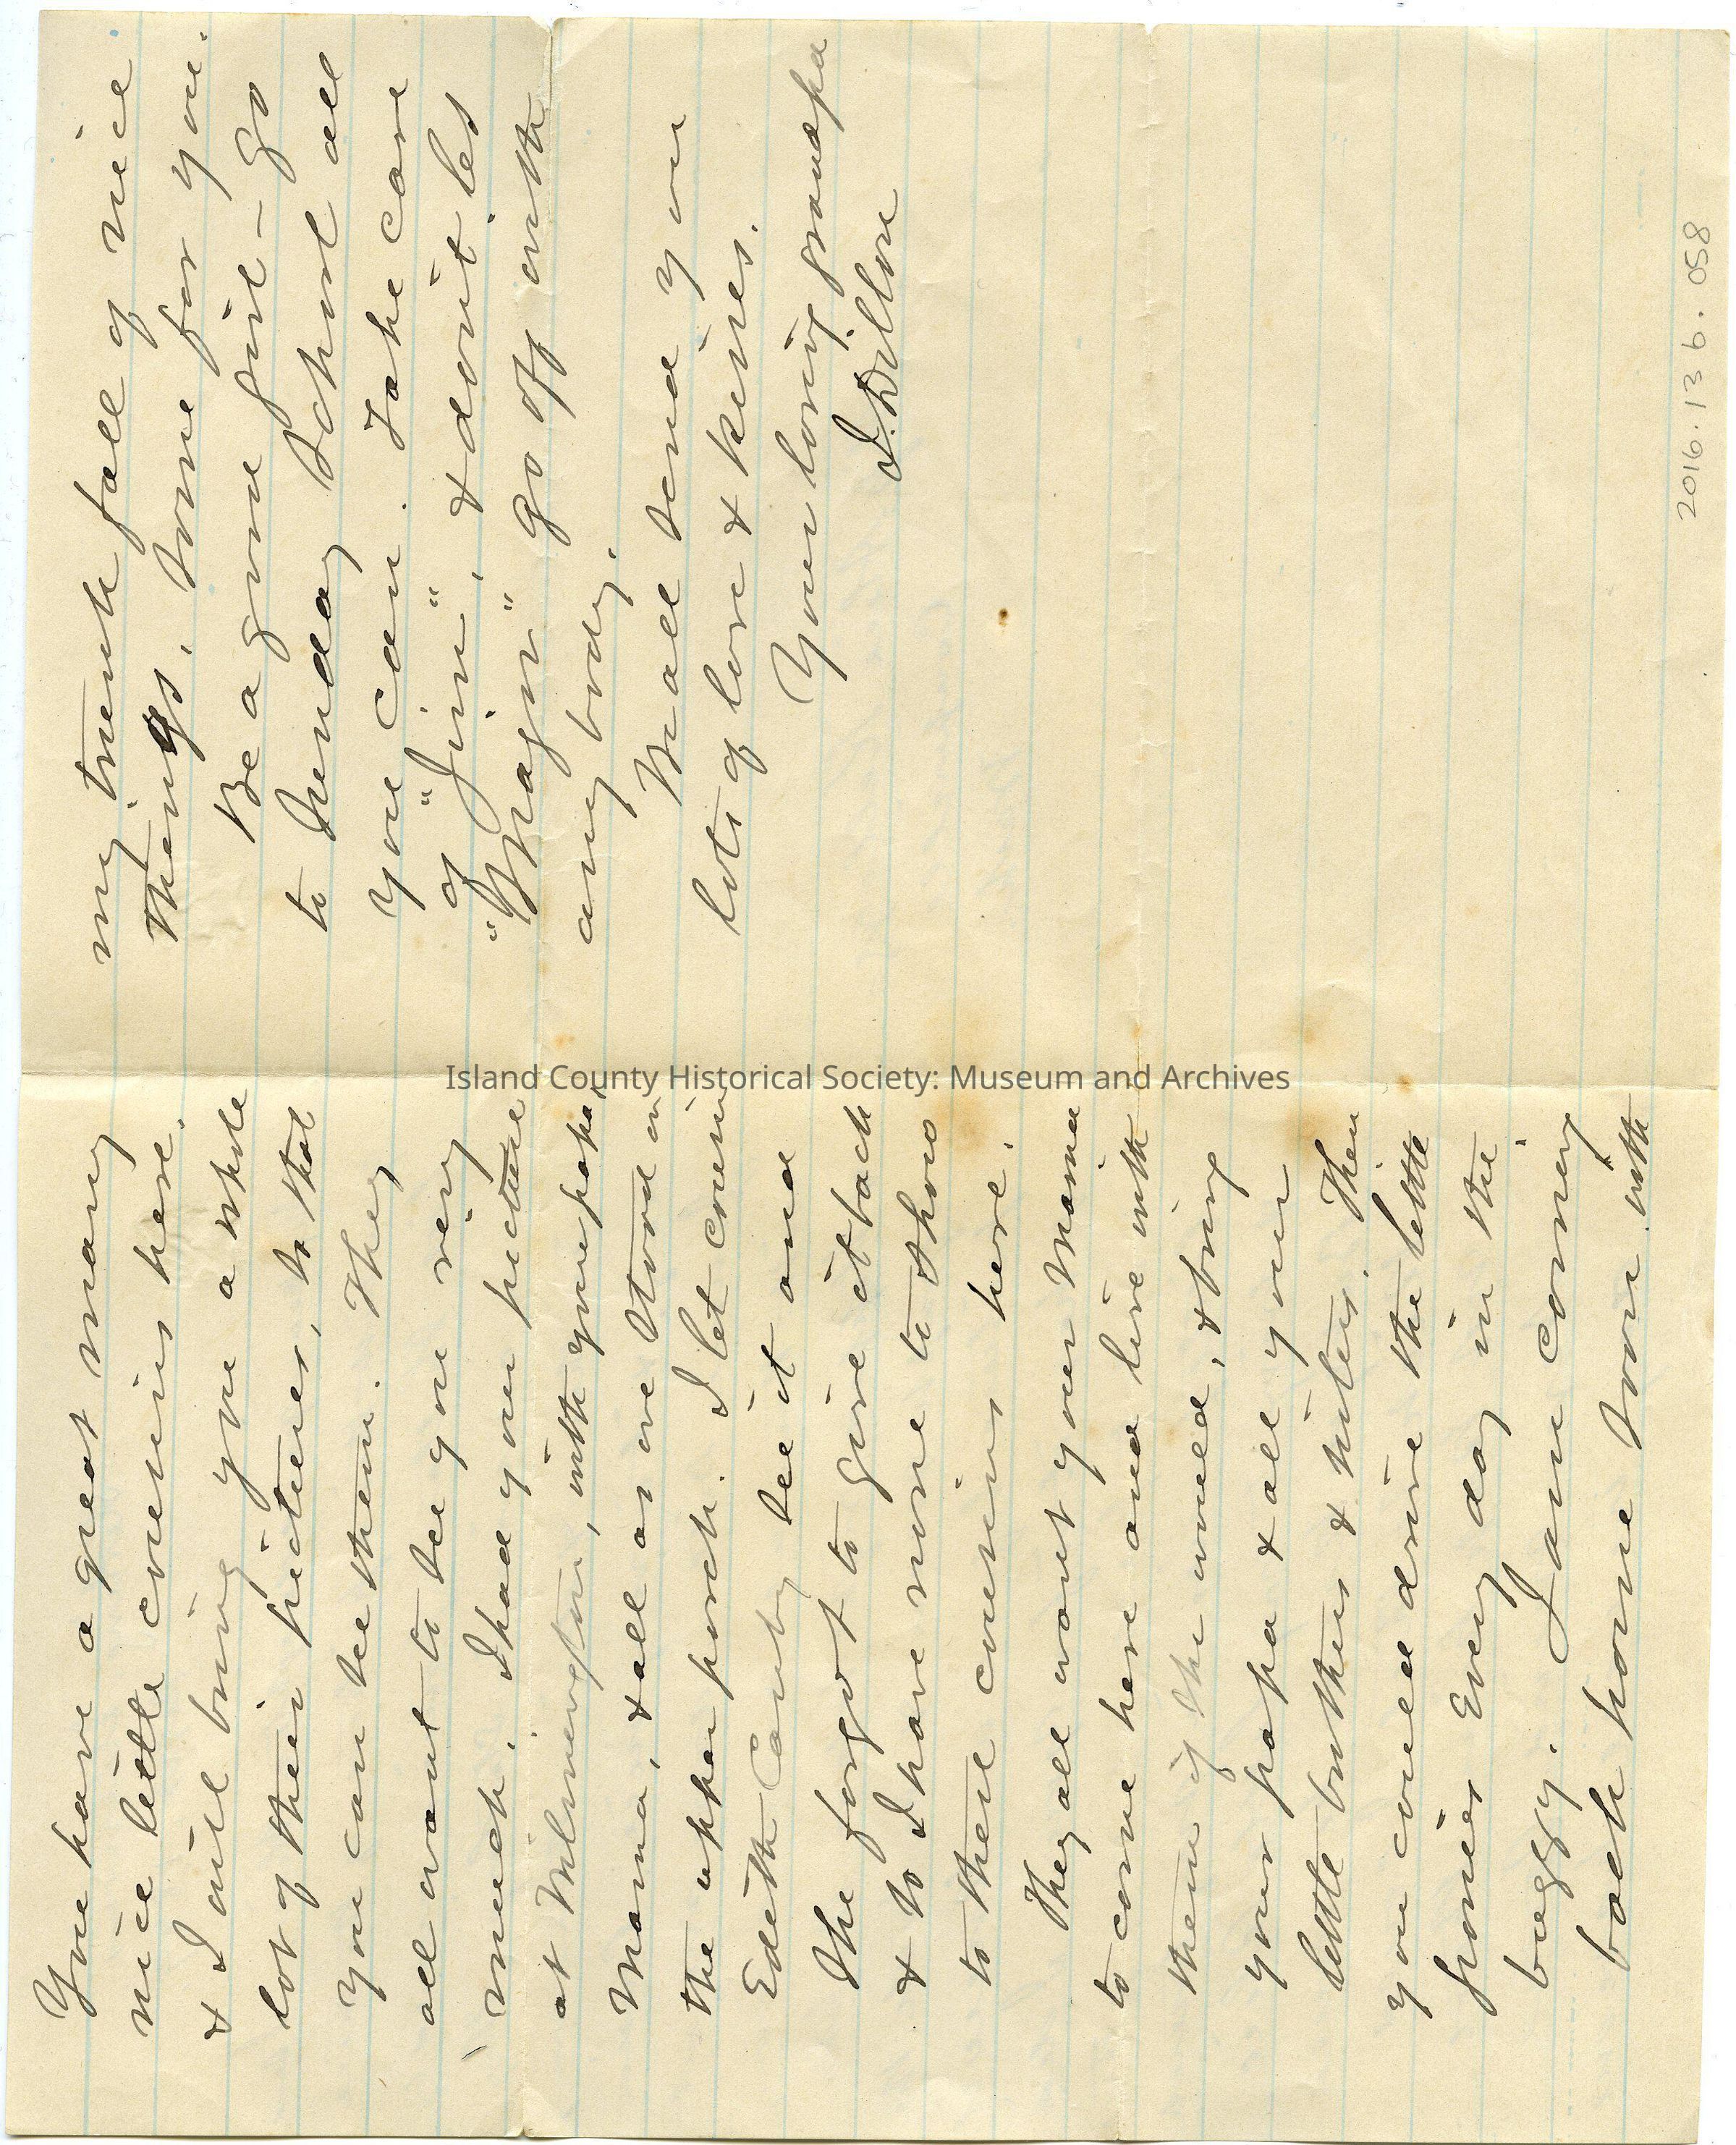 You have a great many
nice little cousins here.
& I will bring you a whole
lot of their pictures, so that
you can see them. They
all want to see you very
much. I had your picture
at Wilmington, with your papa,
Mama, & all as we stood on
the upper porch. I let cousin
Edith Canby see it and
She forgot to give it back
& so I have none to show
to their cousins here.
They all want your Mama
to come here and live with
them if she would, & bring
your papa & all your
little brothers & sisters. Then
you could drive the little
ponies Every day in the
buggy. I am coming
back home soon with
my trunk full of nice
things. Some for you.
Be a good girl - go
to Sunday School all
you can. Take care
of "Jim", & don't let
"Magin" go off with
any body.
We all send you
lots of love & kisses.
Your loving grandpa
I. Dillon
2016.13b.058
Island County Historical Society: Museum and Archives